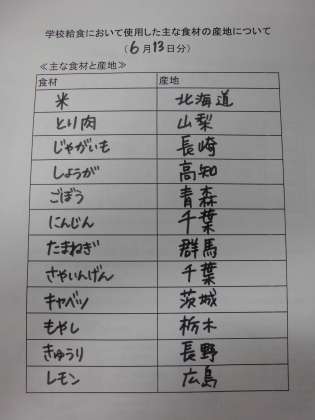 学校給食において使用した主な食材の産地について
(6月13日分)
≪主な食材と産地≫
食材 産地
米 北海道
とり肉 山梨
じゃがいも 長崎
しょうが 高知
ごぼう 青森
にんじん 千葉
たまねぎ 群馬
さやいんげん 千葉
キャベツ 茨城
もやし 栃木
きゅうり 長野
レモン 広島